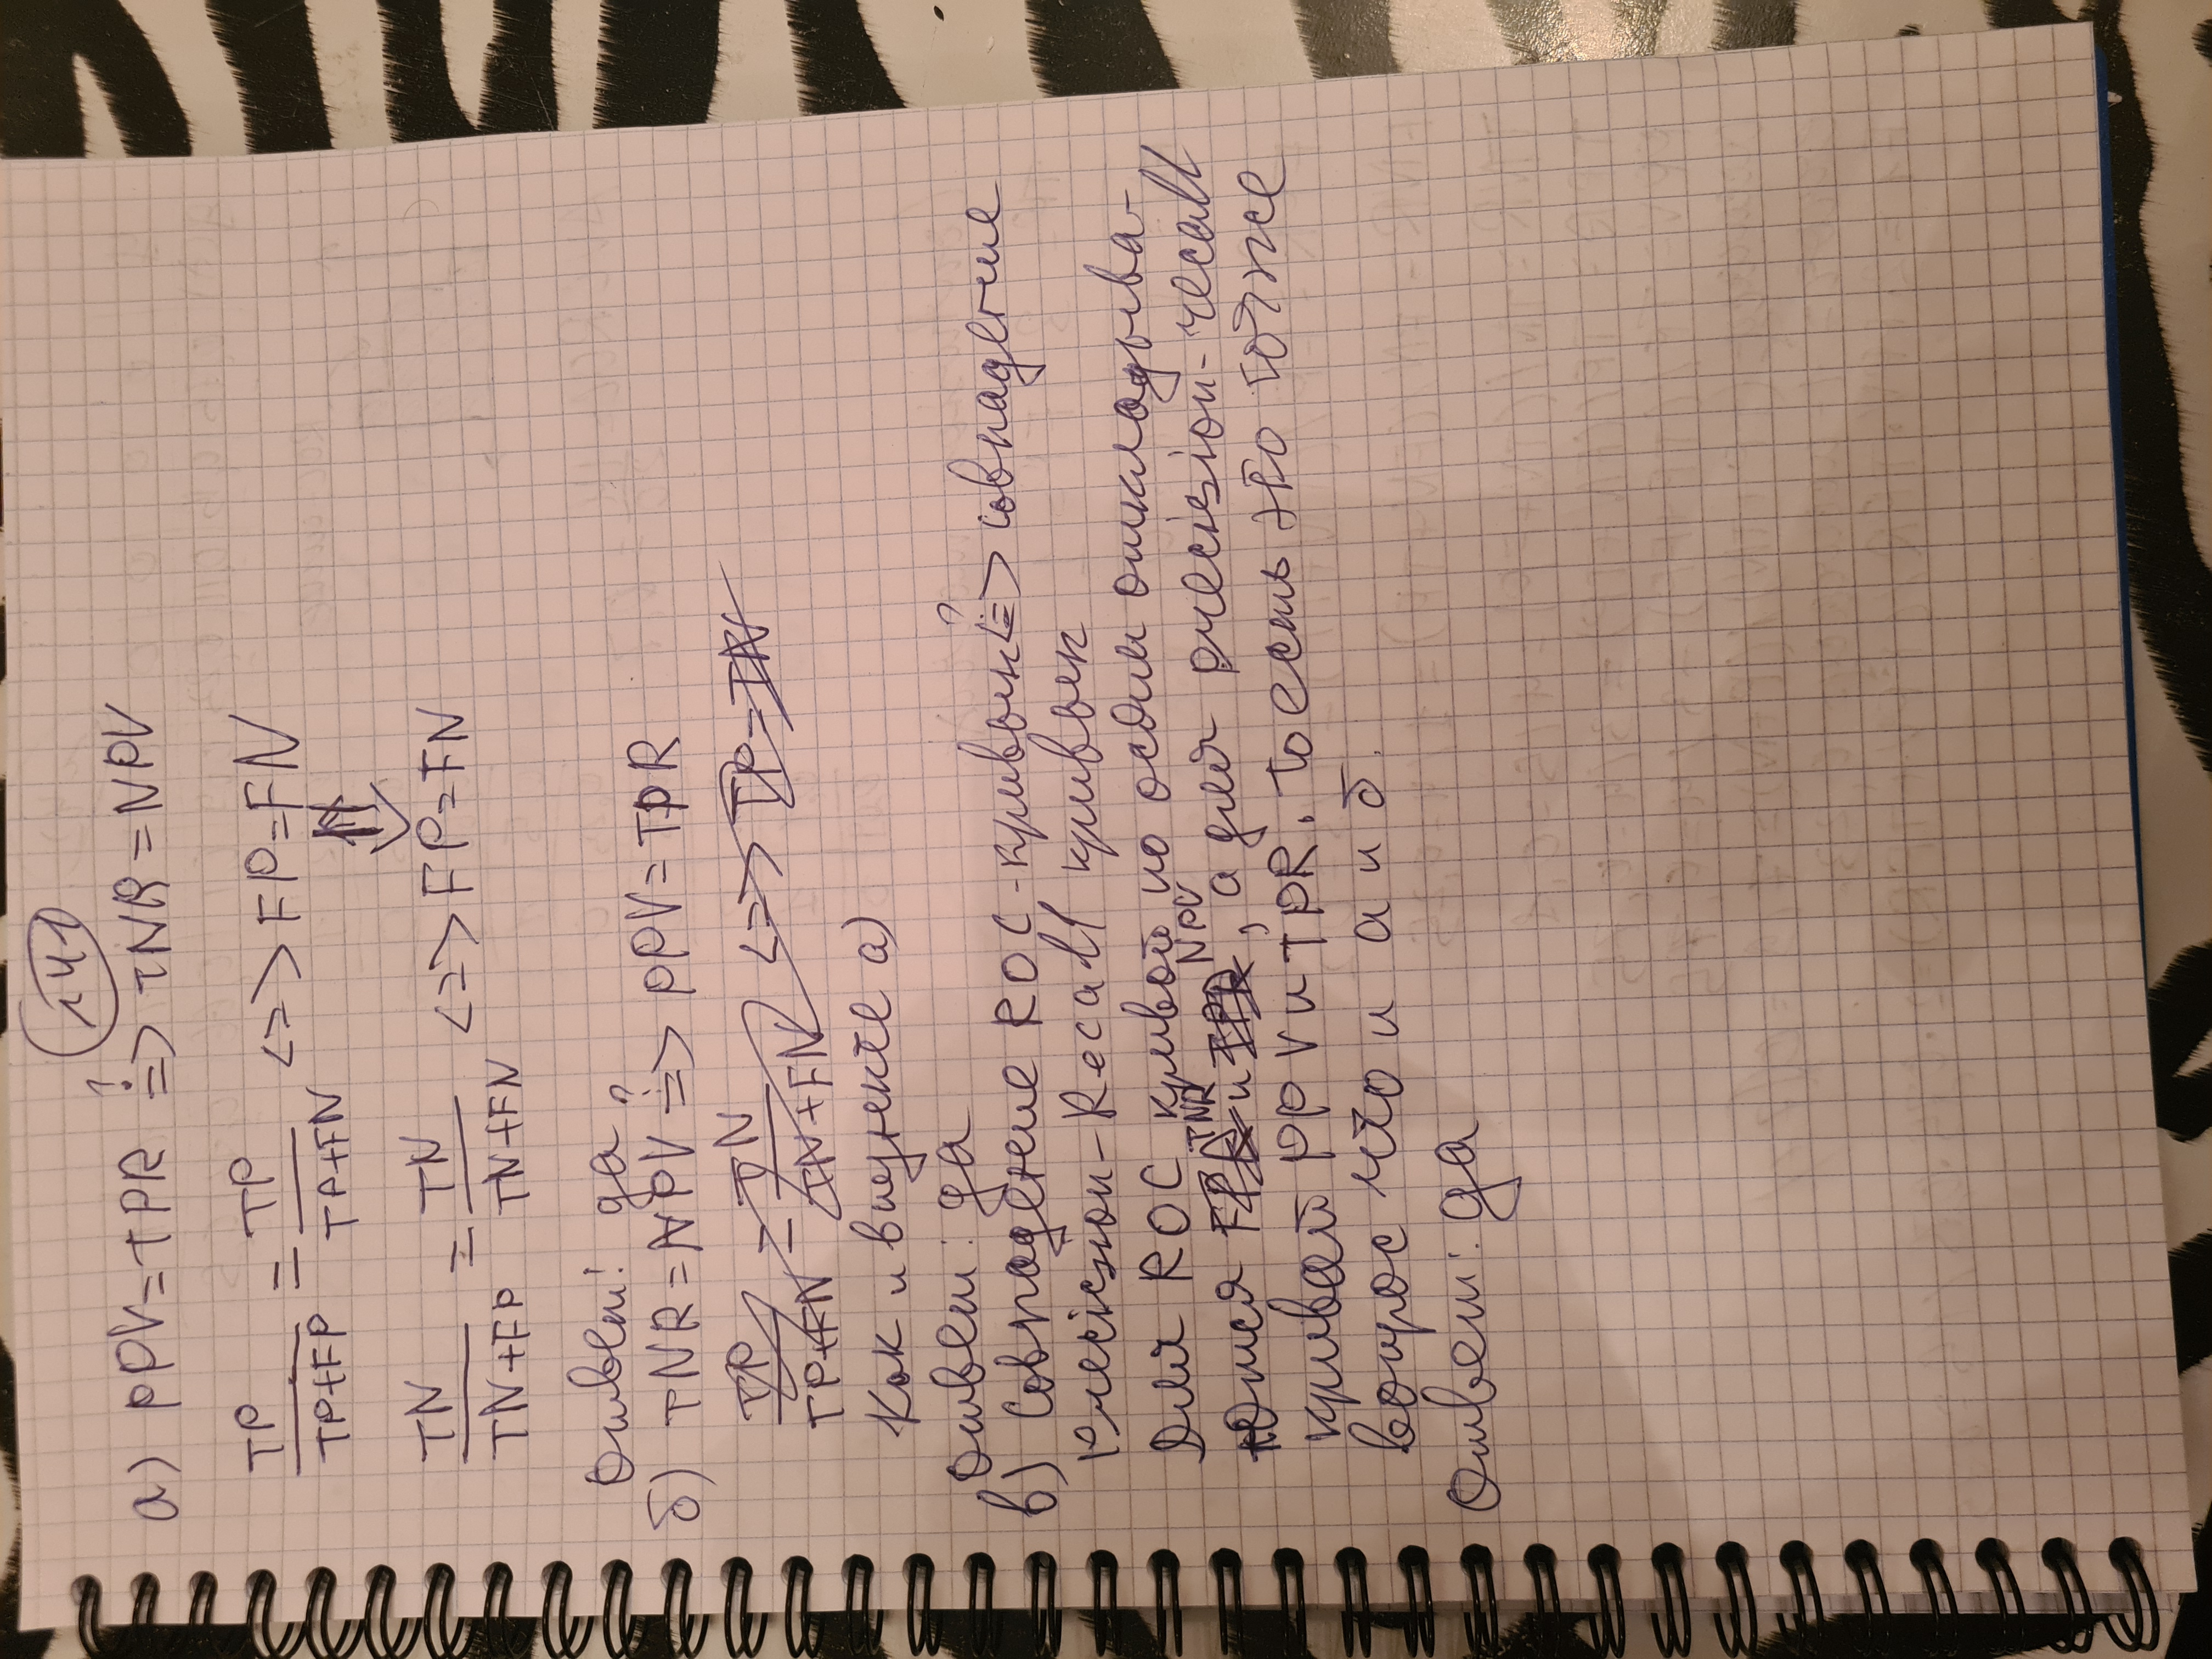 141
а) PPV = TPR ?=> TNR = NPV
TP/(TP+FP) = TP/(TP+FN) <=> FP=FN
TN/(TN+FP) = TN/(TN+FN) <=> FP=FN
Ответ: да
б) TNR = NPV ?=> PPV = TPR
TP/(TP+FN) = TN/(TN+FN) <=> TP=TN
Как и в пункте а)
Ответ: да
в) Совпадение ROC-кривых <?=> совпадение
Precision-Recall кривых
Для ROC кривой по осям откладыва-
ются FPR TNR и TPR NPV, а для precision-recall
кривой PPV и TPR. То есть это тот же
вопрос что и а и б.
Ответ: да